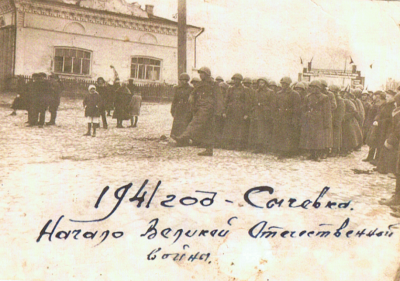 1941 год - Сычевка.
Начало Великой Отечественной
война.